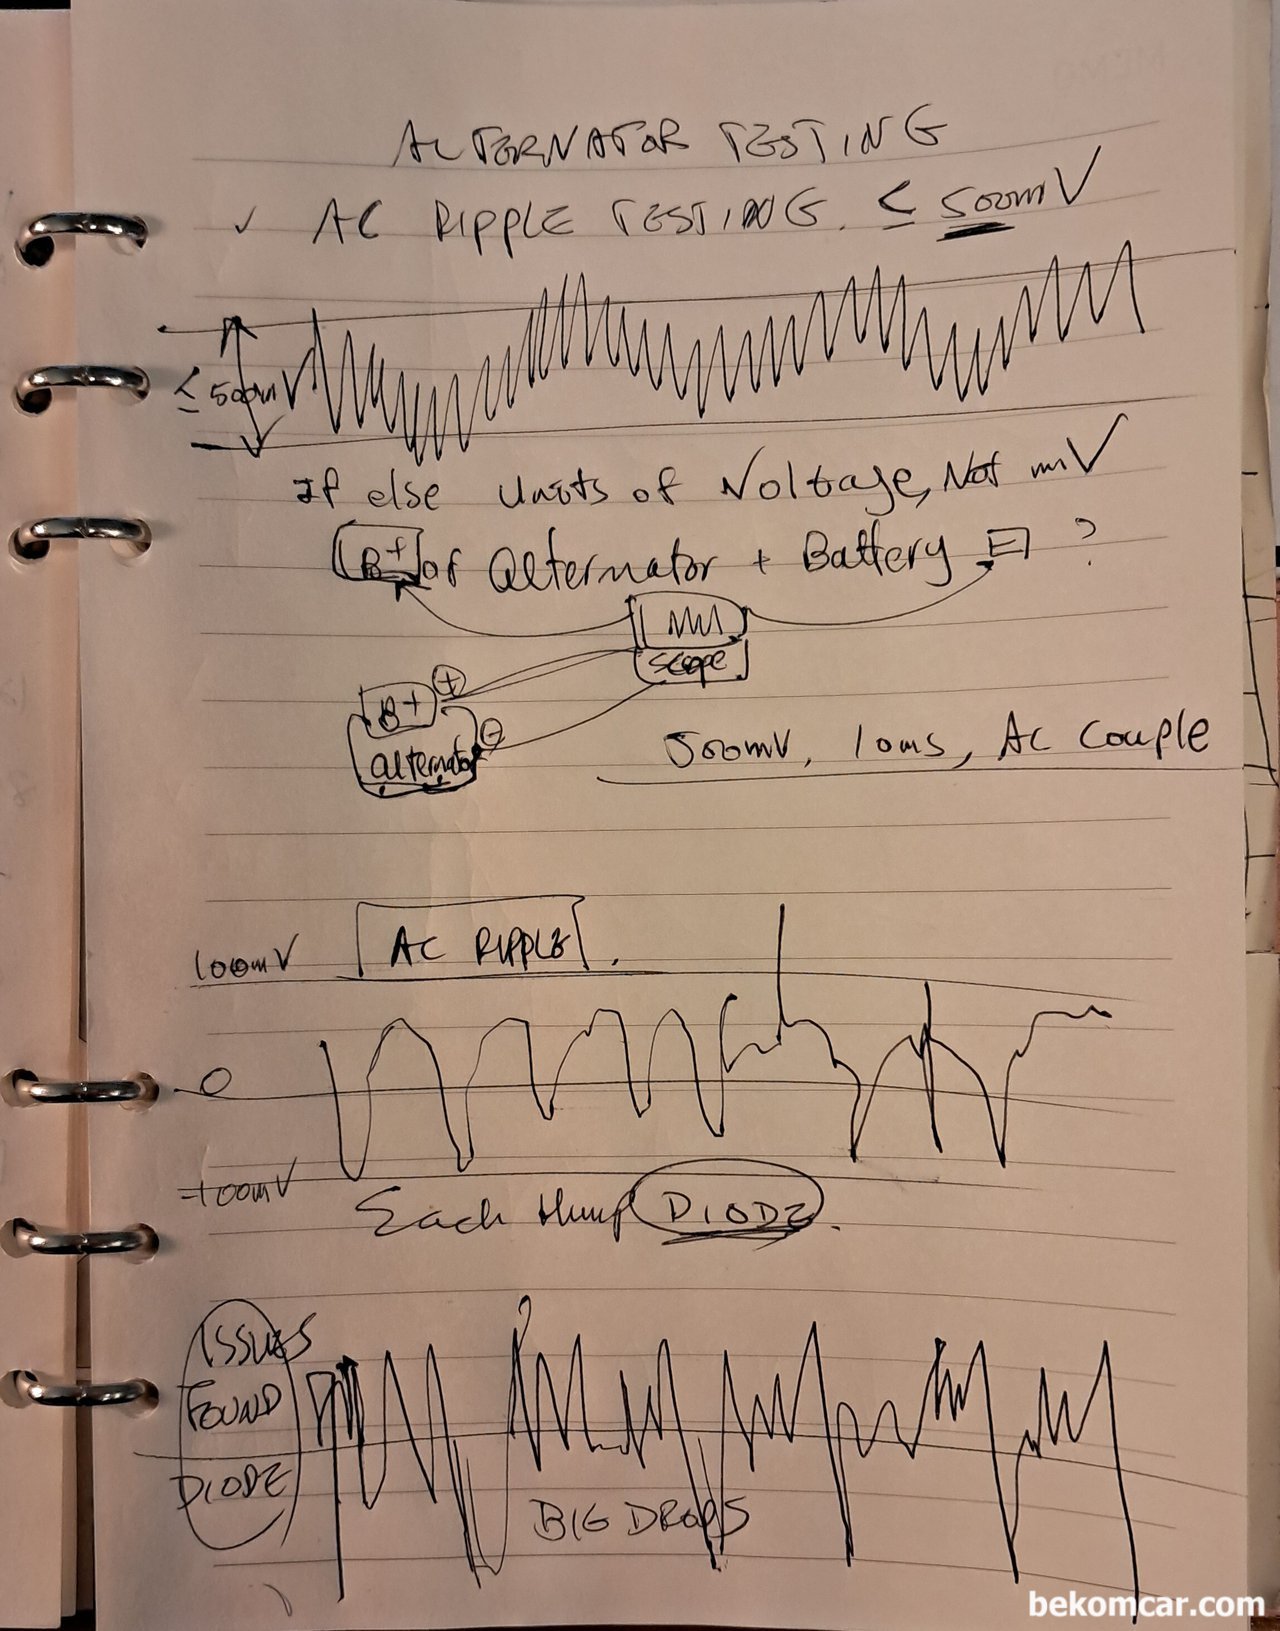 ALTERNATOR TESTING
✓ AC RIPPLE TESTING. ≤ 500mV
≤ 500mV
If else units of Voltage, Not mV
B+ of alternator + Battery ⊟ ?
scope
B+ +
alternator -
500mV, 10ms, AC Couple
100mV AC RIPPLE.
0
-100mV
Each Hump DIODE.
ISSUES
FOUND
DIODE
BIG DROPS
bekomcar.com